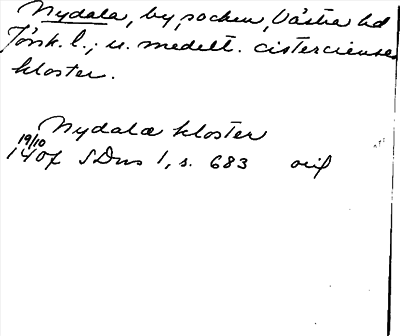 Nydala, by, socken, Västra hd
Jönk. l.; u. medelt. cistercienser
kloster.
Nydala kloster
19/10
1407 SDns 1, s. 683 orig